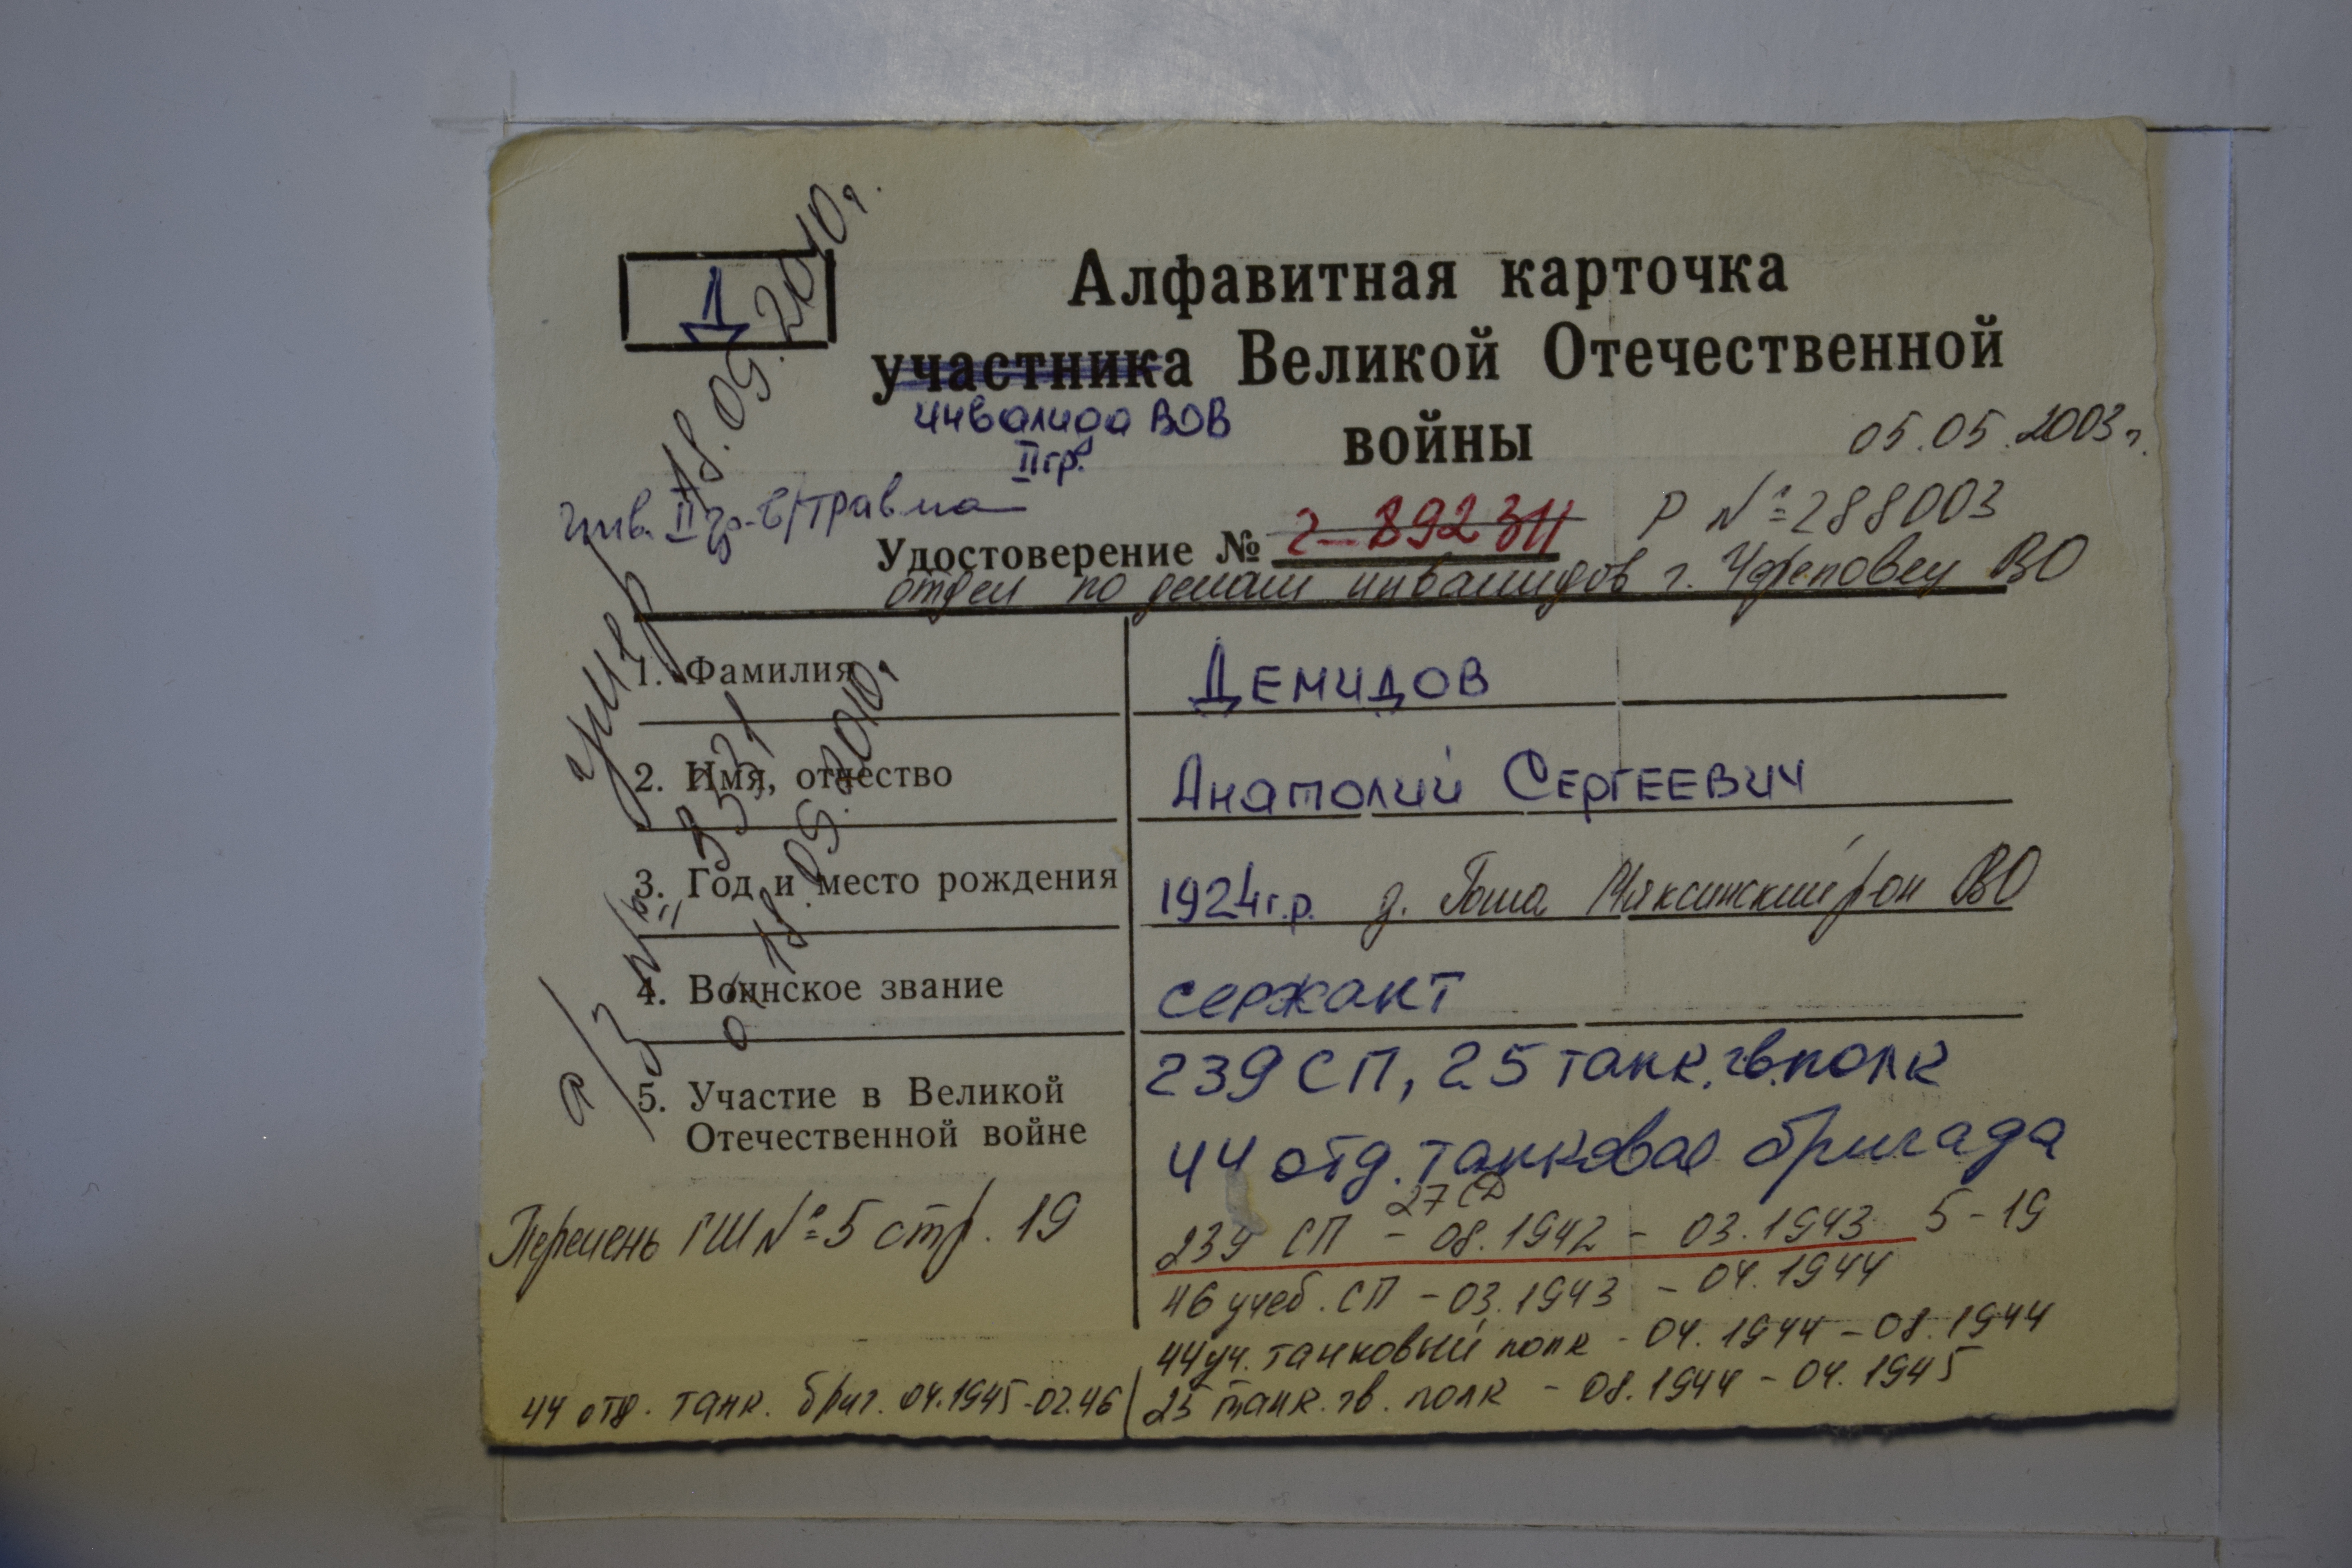 Д
18.05.2010г.
Алфавитная карточка
участника Великой Отечественной
инвалида ВОВ
войны
05.05.2003г.
II гр.
инв. II гр.-в/травма
Удостоверение № Р №288003
отдел по делам инвалидов г. Череповец ВО
умер
1. Фамилия Демидов
2. Имя, отчество Анатолий Сергеевич
3. Год и место рождения 1924г.р. д. Мяксинский р-он ВО
4. Воинское звание сержант
5. Участие в Великой Отечественной войне
239 СП, 25 танк. гв. полк
44 отд. танковая бригада
а/з № 3531
от 18.05.2010г.
Перечень ГШ №5 стр. 19
27 СД
239 СП - 08.1942 - 03.1943 5-19
46 учеб. СП - 03.1943 - 04.1944
44 уч. танковый полк - 04.1944 - 08.1944
25 танк. гв. полк - 08.1944 - 04.1945
44 отд. танк. бриг. 04.1945-02.46